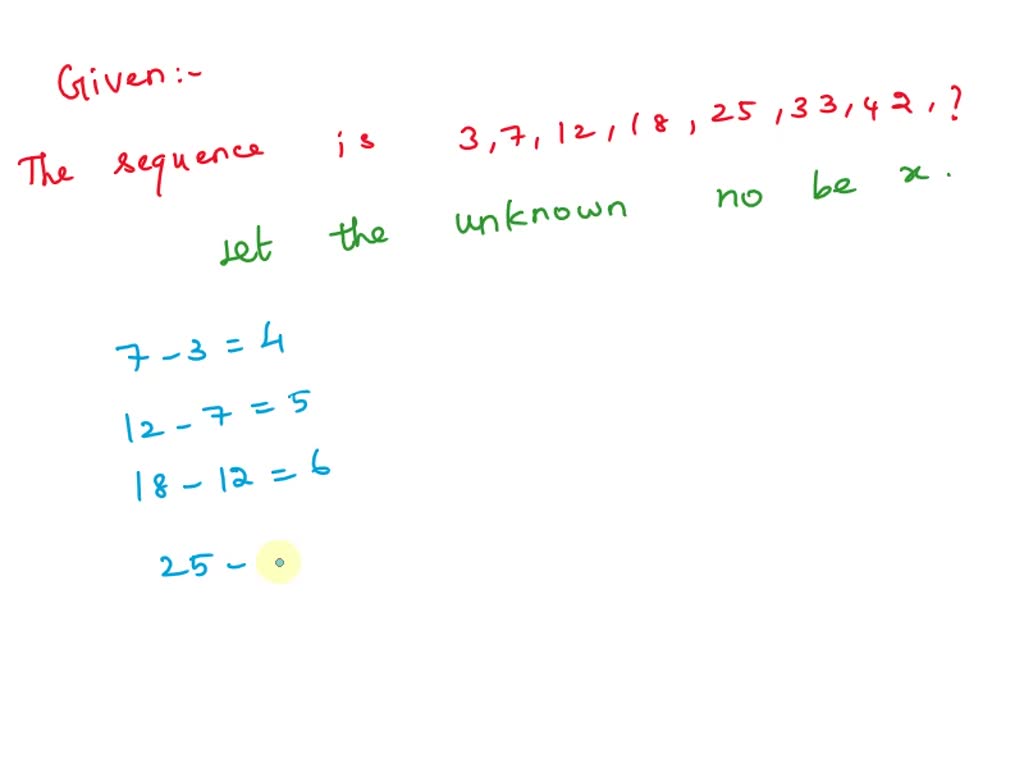 Given :-
The sequence is 3, 7, 12, 18, 25, 33, 42, ?
Let the unknown no be x.
7 - 3 = 4
12 - 7 = 5
18 - 12 = 6
25 -